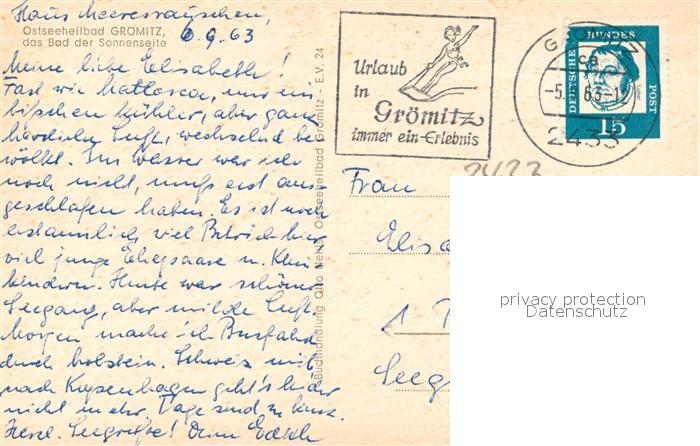 Haus Meeresrauschen,
Ostseeheilbad GRÖMITZ,
das Bad der Sonnenseite
6.9.63
Meine liebe Elisabeth!
Fast wie Mallorca, nur ein
bißchen kühler, aber ganz
herrliche Luft, wechselnd be
wölkt. Im Wasser war ich
noch nicht, muß erst aus-
geschlafen haben. Es ist noch
erstaunlich viel Betrieb hier,
viel junge Ehepaare u. Klein
kindern. Heute war schöner
Seegang, aber milde Luft.
Morgen mache ich Busfahrt
durch holstein. Schweiz mit
nach Kopenhagen geht's leider
nicht mehr, Tage sind zu kurz.
Herzl. Seegrüße! Deine
Buchhandlung Otto Ostseeheilbad Grömitz - E.V. 24
Urlaub
in
Grömitz
immer ein Erlebnis
GRÖMITZ
ca
-5. 63-12
2433
DEUTSCHE BUNDES POST
15
2433
Frau
Elisa
1
Seeg
privacy protection
Datenschutz